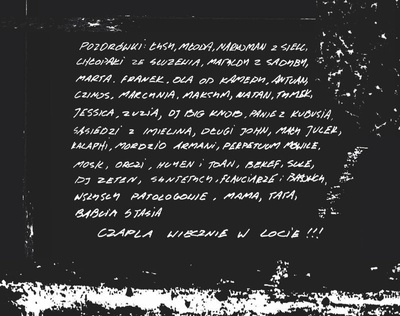 POZDRÓWKI: ŁYSY, MŁODA, NARKOMAN Z SIEKĄ,
CHŁOPAKI ZE SŁUŻENIA, MATYLDY Z SADYBY,
MARTA, FRANEK, OLA OD KAMERY, ANTUAN,
MARCYNIA, MAKSYM, NATAN, TYMEK,
JESSICA, ZUZIA, DJ BIG KNOB, PANI Z KUBUSIA,
SĄSIEDZI Z IMIELINA, DŁUGI JOHN, MAŁY JULEK,
KALAPHI, MORDZIO ARMANI, PERPETUUM MOBILE,
MOSK, OROZI, I TOAN, BEKEF,
DJ ZETEN, SYNTETYCH, FLAVCIARZE I
WSZYSCY PATOLOGOWIE, MAMA, TATA,
BABCIA STASIA
CZAPLA WIECZNIE W LOCIE !!!